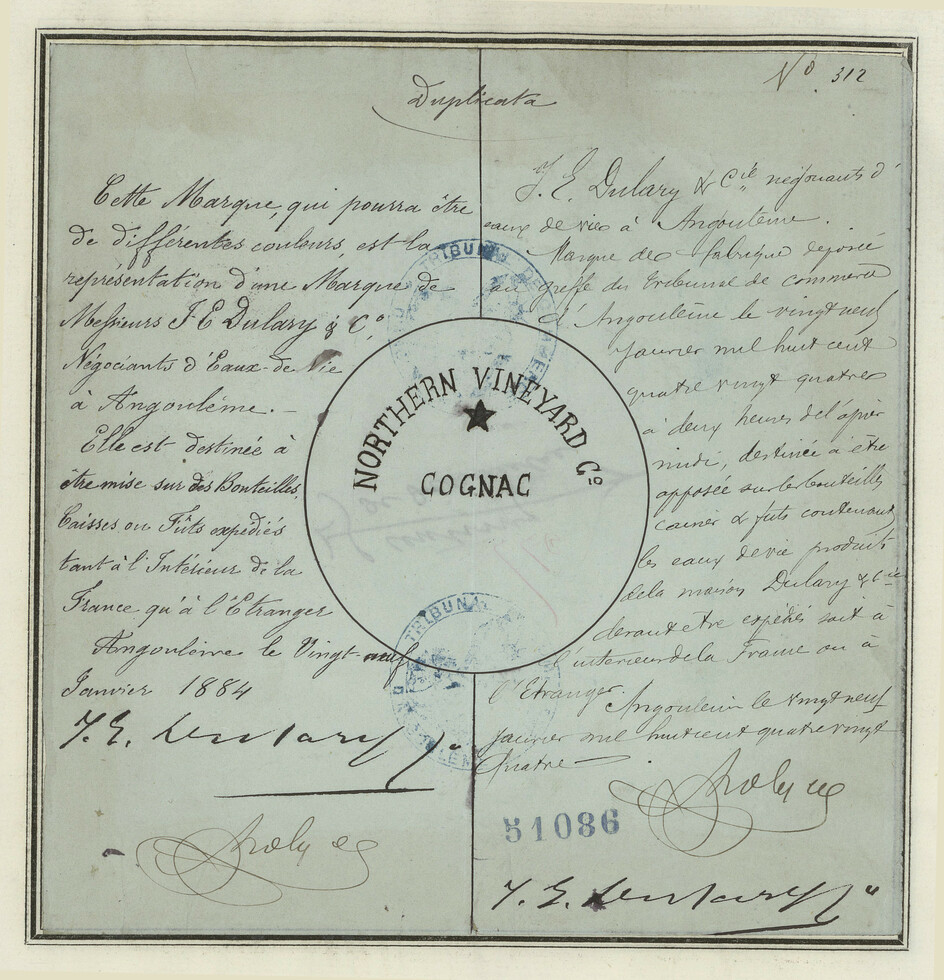 Nº 312
Duplicata
Cette Marque, qui pourra être
de différentes couleurs, est la
représentation d'une Marque de
Messieurs J E Dulary & Cº,
Négociants d'Eaux-de-Vie
à Angoulême. —
Elle est destinée à
être mise sur des Bouteilles,
Caisses ou Fûts expédiés
tant à l'Intérieur de la
France qu'à l'Etranger
Angoulême le Vingt-neuf
Janvier 1884
J. E. Dulary
J. E. Dulary & Cie négociants d'
eaux de vies à Angoulême.
Marque de fabrique déposée
au greffe du tribunal de commerce
d'Angoulême le vingt neuf
janvier mil huit cent
quatre vingt quatre
à deux heures de l'après
midi, destinée à être
apposée sur les bouteilles
caisses & futs contenant
les eaux de vie produits
de la maison Dulary & Cie
devant etre expédiés soit à
l'interieur de la France ou à
l'Etranger.
Angoulême le vingt neuf
janvier mil huit cent quatre vingt
quatre
51086
J. E. Dulary
NORTHERN VINEYARD Cº
COGNAC
TRIBUNAL DE
TRIBUNAL